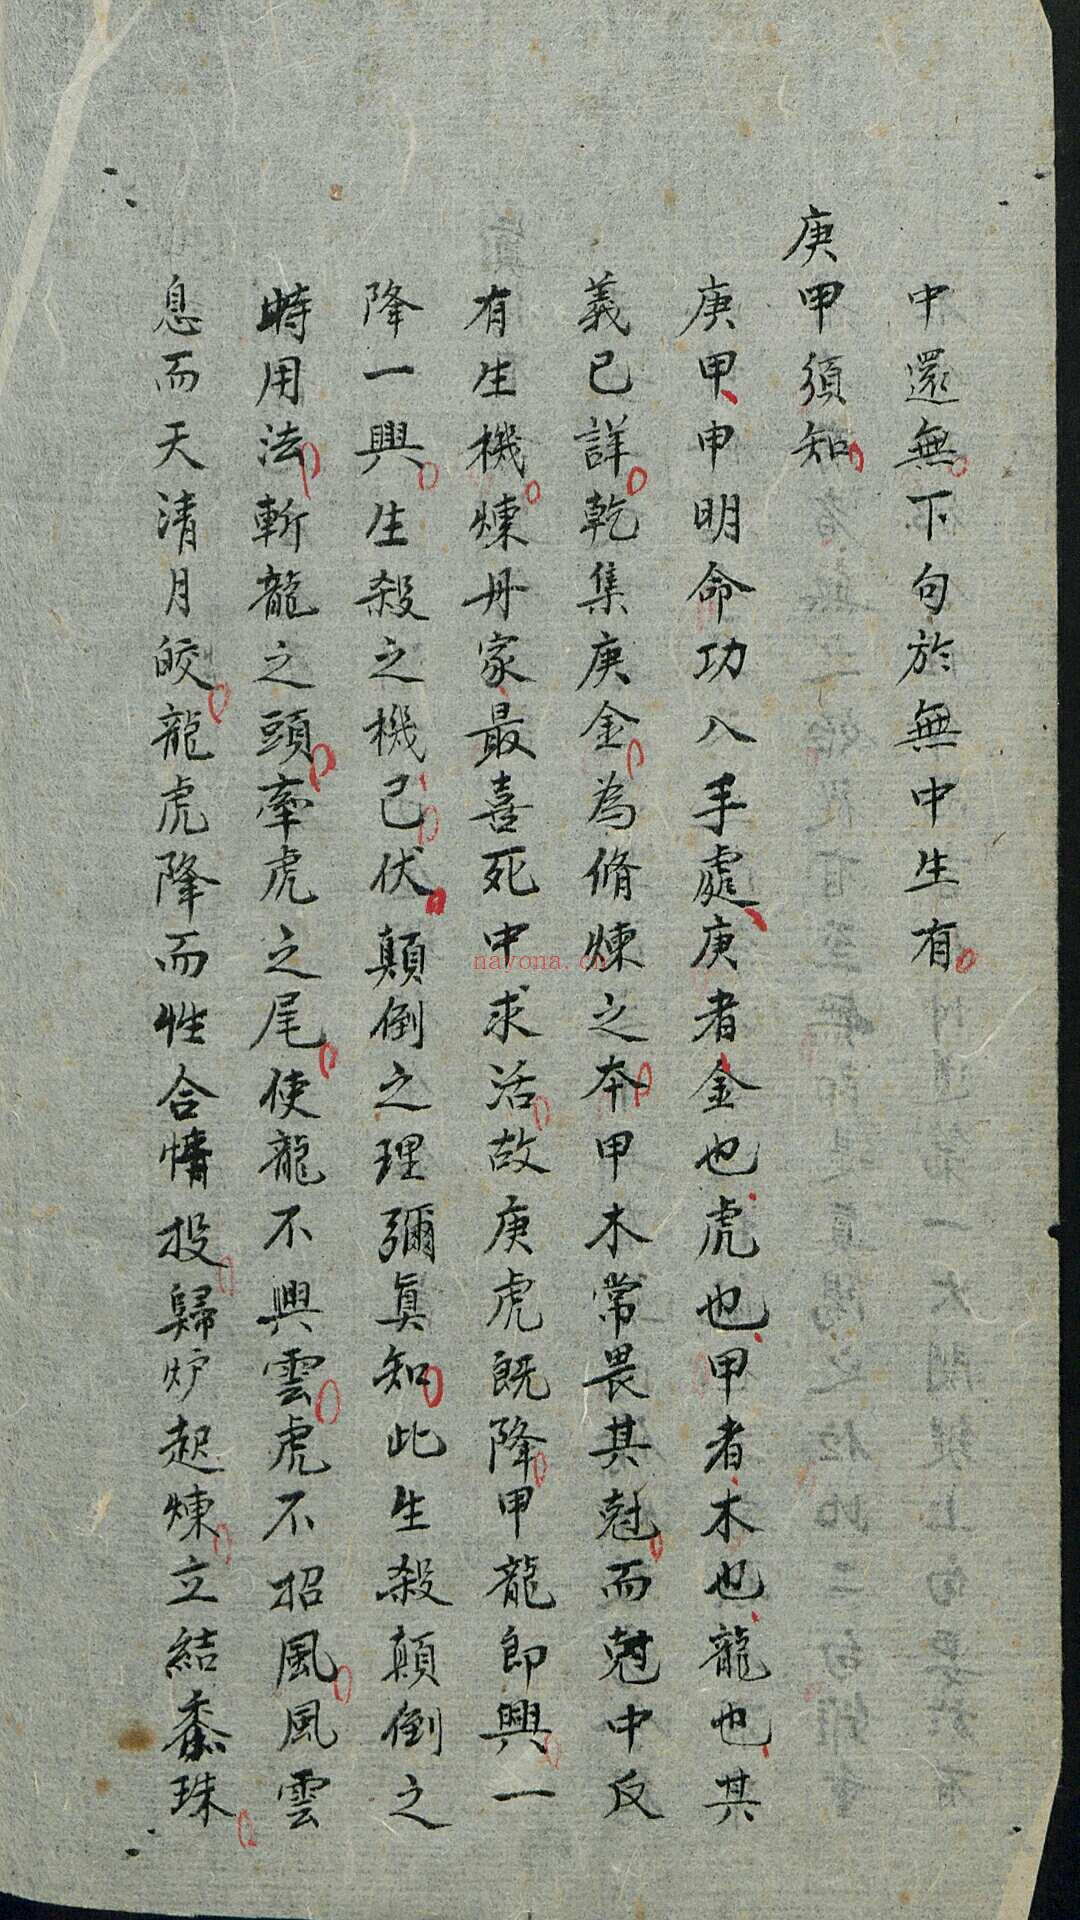 中還無下句於無中生有
庚甲須知
庚甲申明命功入手處庚者金也虎也甲者木也龍也其
義已詳乾集庚金為脩煉之本甲木常畏其尅而尅中反
有生機煉丹家最喜死中求活故庚虎既降甲龍即興一
降一興生殺之機已伏顛倒之理彌眞知此生殺顛倒之
時用法斬龍之頭牽虎之尾使龍不興雲虎不招風風雲
息而天清月皎龍虎降而性合情投歸炉起煉立結黍珠
nayona.cn